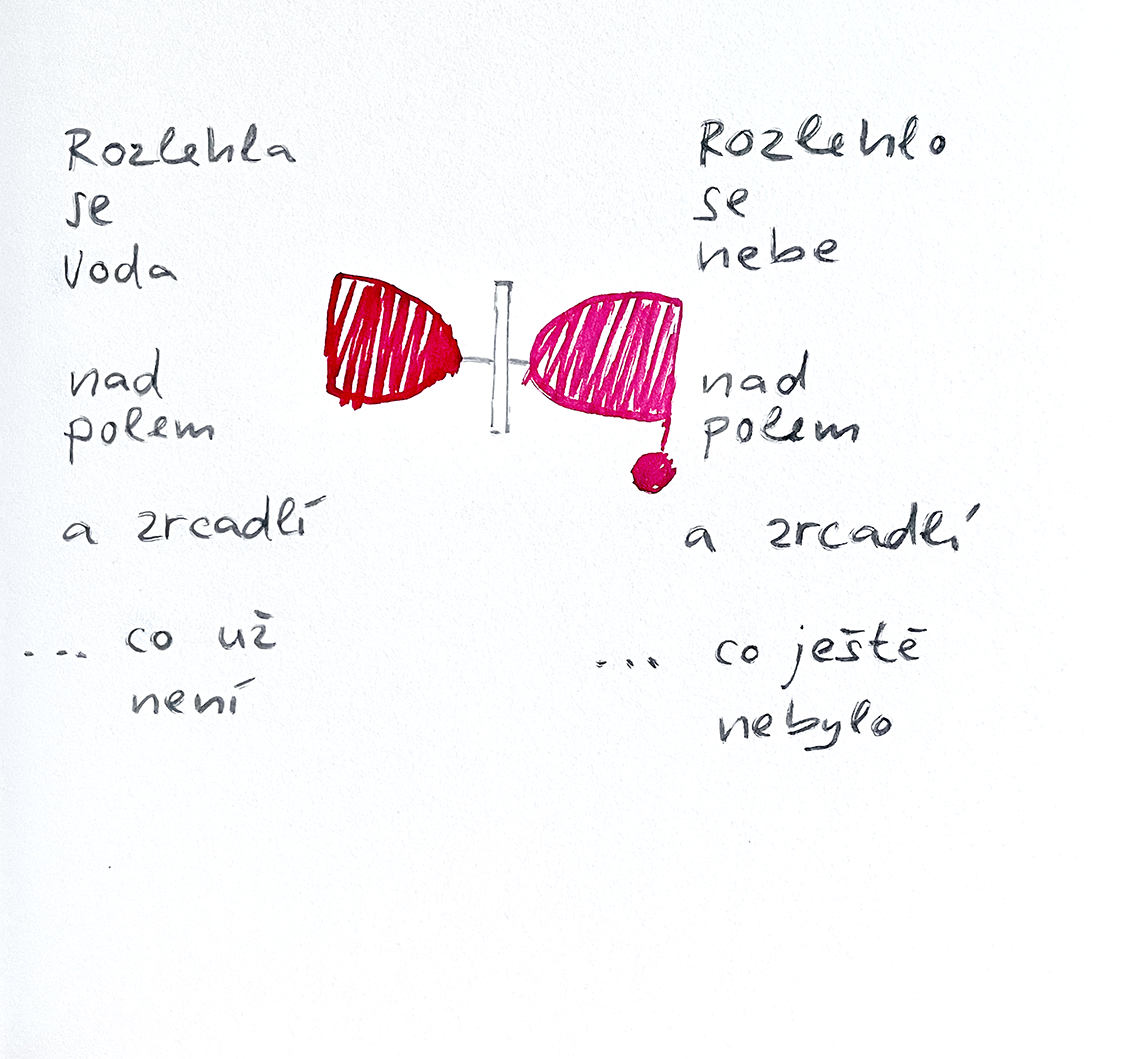 Rozlehla
se
voda
nad
polem
a zrcadlí
... co už
není
Rozlehlo
se
nebe
nad
polem
a zrcadlí
... co ještě
nebylo